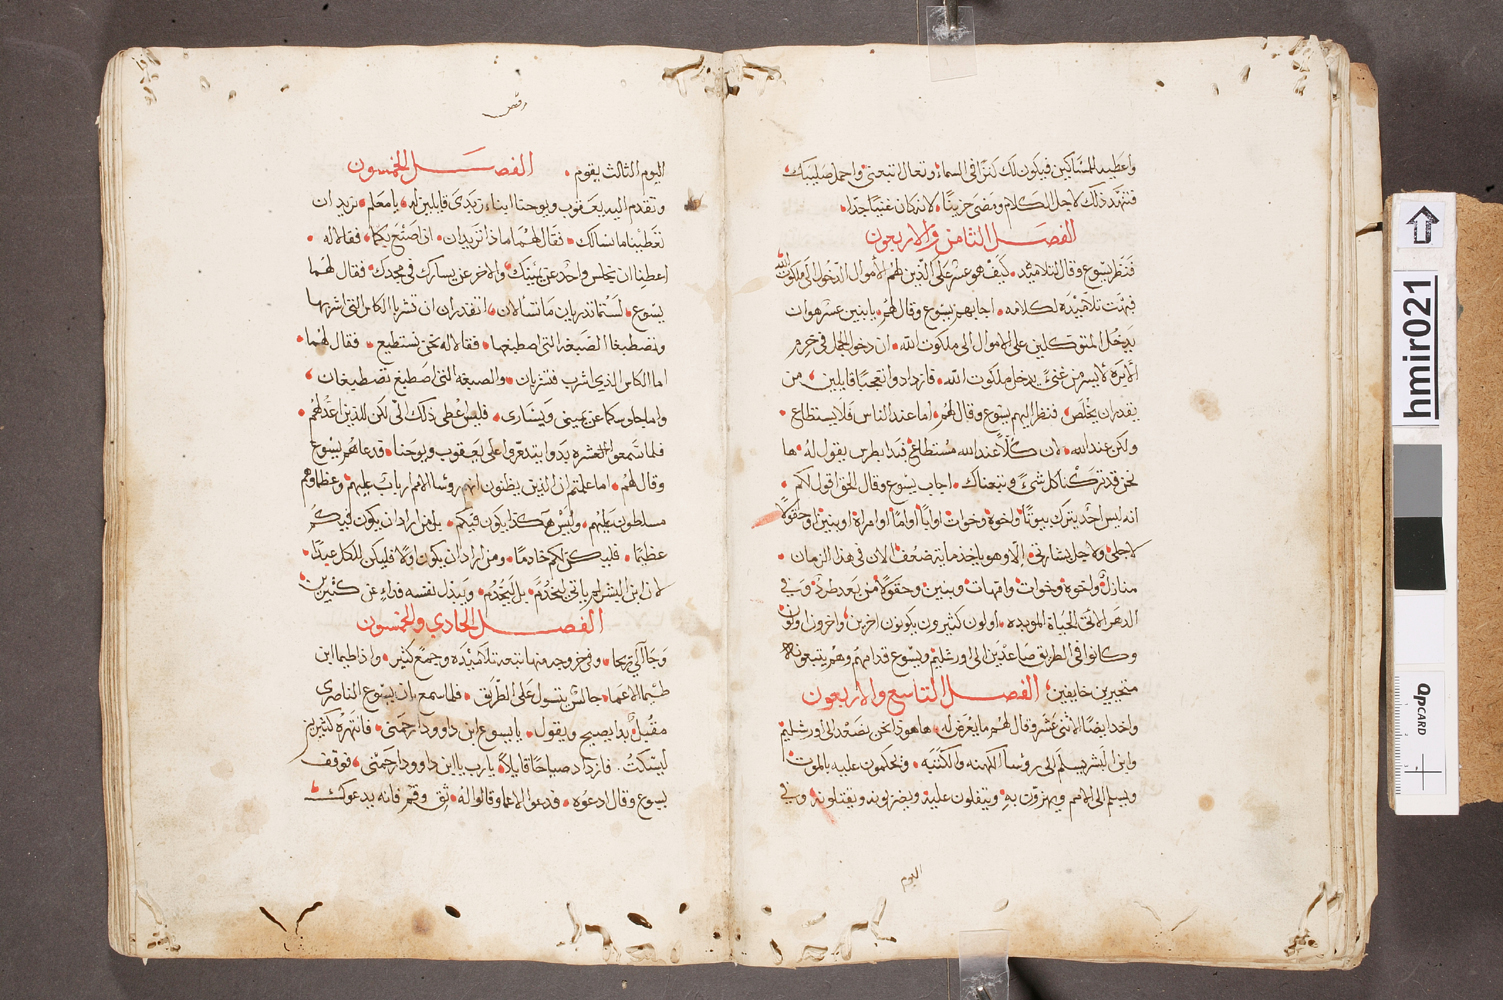 واعطيه للمساكين فيكون لك كنزًا في السماء وتعال اتبعني واحمل صليبك
فتنهّد ذلك لاجل الكلام ومضى حزينًا لانه كان غنيًا جدًا
الفصل الثامن والاربعون
فنظر يسوع وقال لتلاميذه كيف هو عسر على الذين لهم الأموال الدخول الى ملكوت الله
فبهتت تلاميذه لكلامه اجابهم يسوع وقال لهم يا بنين عسر هو ان
يدخل المتوكلين على الاموال الى ملكوت الله ان دخول الجمل في خرم
الأبرة لأيسر من غني يدخل ملكوت الله فازدادوا تعجبًا قايلين من
يقدر ان يخلص فنظر اليهم يسوع وقال لهم اما عند الناس فلا يستطاع
ولكن عند الله لان كلًا عند الله مستطاع فبدا بطرس يقول له ها
نحن قد تركنا كل شيء وتبعناك اجاب يسوع وقال الحق اقول لكم
انه ليس احد يترك بيوتًا واخوة وخوات او ابًا او امًا او امراة او بنين او حقولًا
لاجلي ولاجل بشارتي الّا وهو ياخذ ماية ضعف الان في هذا الزمان
منازل واخوة وخوات وامهات وبنين وحقولًا من بعد طرد وفي
الدهر الاتي الحياة الموبده اولون كثيرون يكونون اخرين واخرون اولون
وكانوا في الطريق صاعدين الى اورشليم ويسوع قدامهم وهم يتبعونه
متحيرين خايفين الفصل التاسع والاربعون
واخد ايضًا الاثني عشر وقال لهم ما يعرض له ها هوذا نحن نصعد الى اورشليم
وابن البشر يسلم الى روسا الكهنه والكتبه ويحكمون عليه بالموت
ويسلم الى الامم ويهزوّن به ويتفلون عليه ويضربونه ويقتلونه وفي
اليوم
اليوم الثالث يقوم الفصل الخمسون
وتقدم اليه يعقوب ويوحنا ابناء زبدى قايلين له يا معلم نريد ان
تعطينا ما نسالك فقال لهما ماذا تريدان ان اصنع بكما فقالا له
اعطنا ان يجلس واحد عن يمينك والاخر عن يسارك في مجدك فقال لهما
يسوع لستما تدريان ما تسالان اتقدران ان تشربا الكاس التي اشربها
وتصطبغا الصبغه التي اصطبغها فقالا له نحن نستطيع فقال لهما
اما الكاس الذي اشرب فتشربان والصبغه التي اصطبغ تصطبغان
واما جلوسكما عن يميني ويسارى فليس اعطي ذلك الّي لكن للذين اعد لهم
فلما سمعوا العشره بدوا يتذمروا على يعقوب ويوحنا فدعاهم يسوع
وقال لهم اما علمتم ان الذين يظنون انهم روسا الامم ارباب عليهم وعظماوهم
مسلطون عليهم وليس هكذا يكون فيكم بل من اراد ان يكون فيكم
عظيمًا فليكن لكم خادمًا ومن اراد ان يكون اولًا فليكن للكل عبدًا
لان ابن البشر لم ياتي ليُخدَم بل ليَخدُم ويبذل نفسه فداء عن كثيرين
الفصل الحادي والخمسون
وجا الى يريحا وفي خروجه منها تبعه تلاميذه وجمع كثير واذا طيما ابن
طيما الاعما جالس يتسول على الطريق فلما سمع بان يسوع الناصرى
مقبل بدا يصيح ويقول يا يسوع ابن داوود ارحمني فانتهره كثيرين
ليسكت فازداد صياحًا قايلا يا رب يا ابن داوود ارحمني فوقف
يسوع وقال ادعوه فدعوا الاعما وقالوا له ثق وقم فانه يدعوك
hmir021
QPCARD